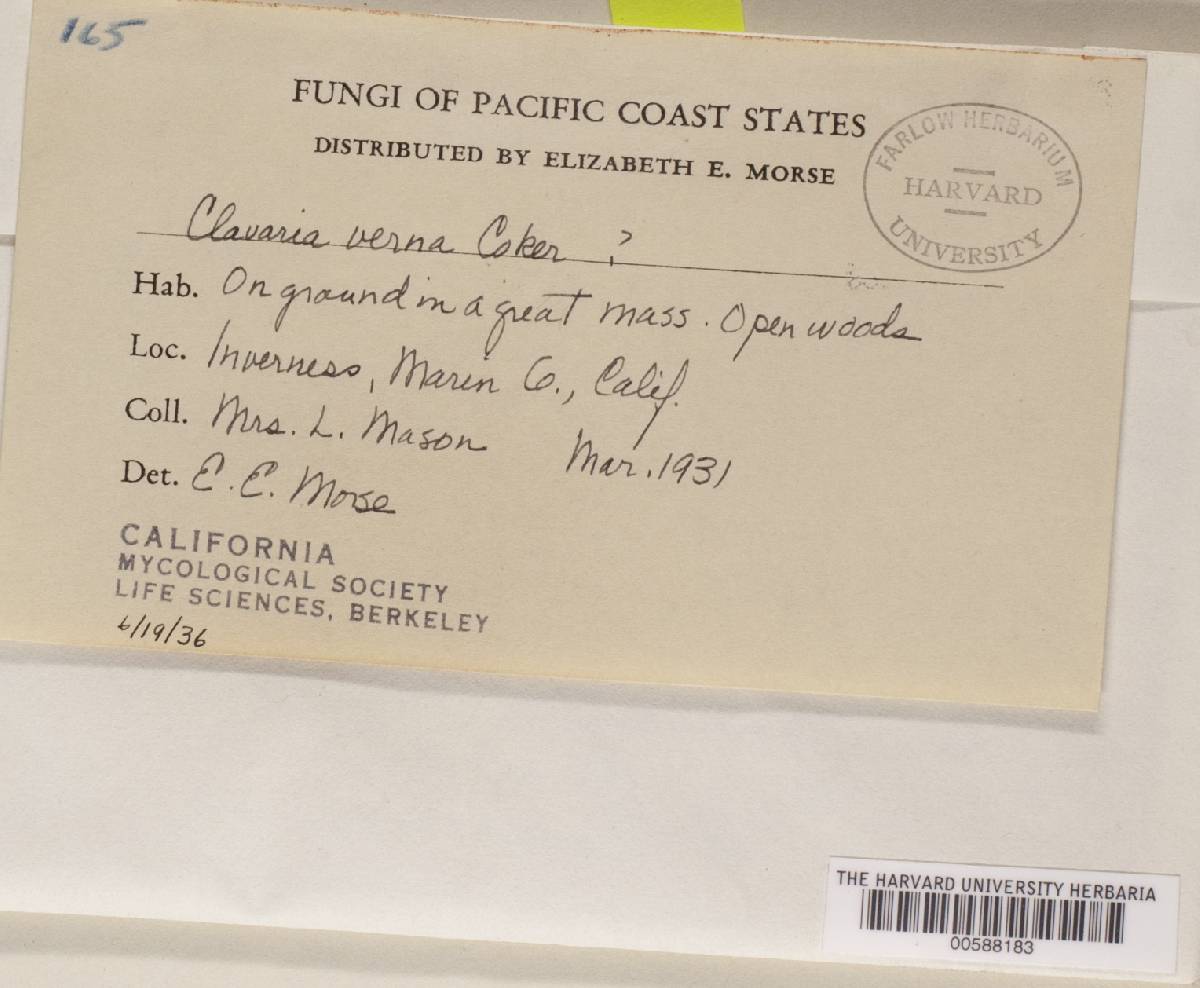 165
FUNGI OF PACIFIC COAST STATES
DISTRIBUTED BY ELIZABETH E. MORSE
FARLOW HERBARIUM
HARVARD
UNIVERSITY
Clavaria verna Coker ?
Hab. On ground in a great mass. Open woods
Loc. Inverness, Marin Co., Calif.
Coll. Mrs. L. Mason Mar. 1931
Det. E. E. Morse
CALIFORNIA
MYCOLOGICAL SOCIETY
LIFE SCIENCES, BERKELEY
6/19/36
THE HARVARD UNIVERSITY HERBARIA
00588183